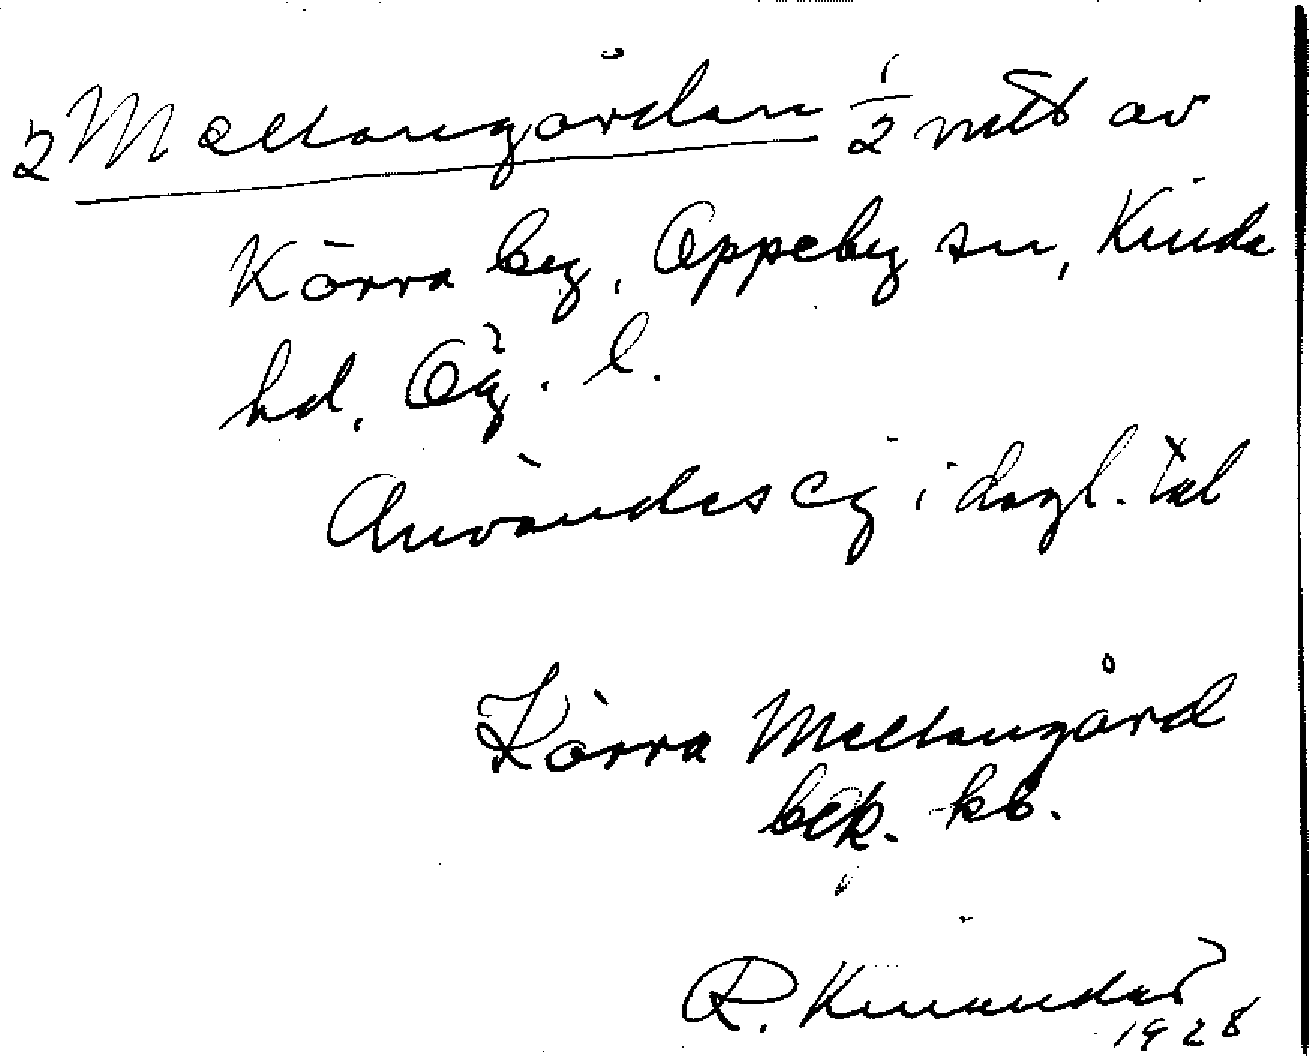 2 Mellangården 1/2 mtl av
Körra by, Oppeby sn, Kinda
hd. Ög. l.
Användes ej i dagl. tal
Körra Mellangård
bek. kb.
R. Kinander
1928